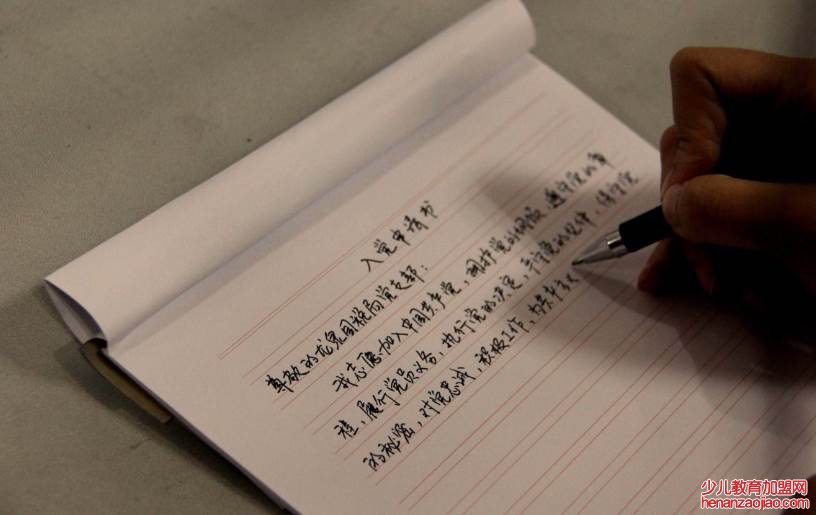 入党申请书
尊敬的龙泉国税局党支部：
我志愿加入中国共产党，拥护党的纲领，遵守党的章
程，履行党员义务，执行党的决定，严守党的纪律，保守党
的秘密，对党忠诚，积极工作，为共产主
少儿教育加盟网
henanzaojiao.com